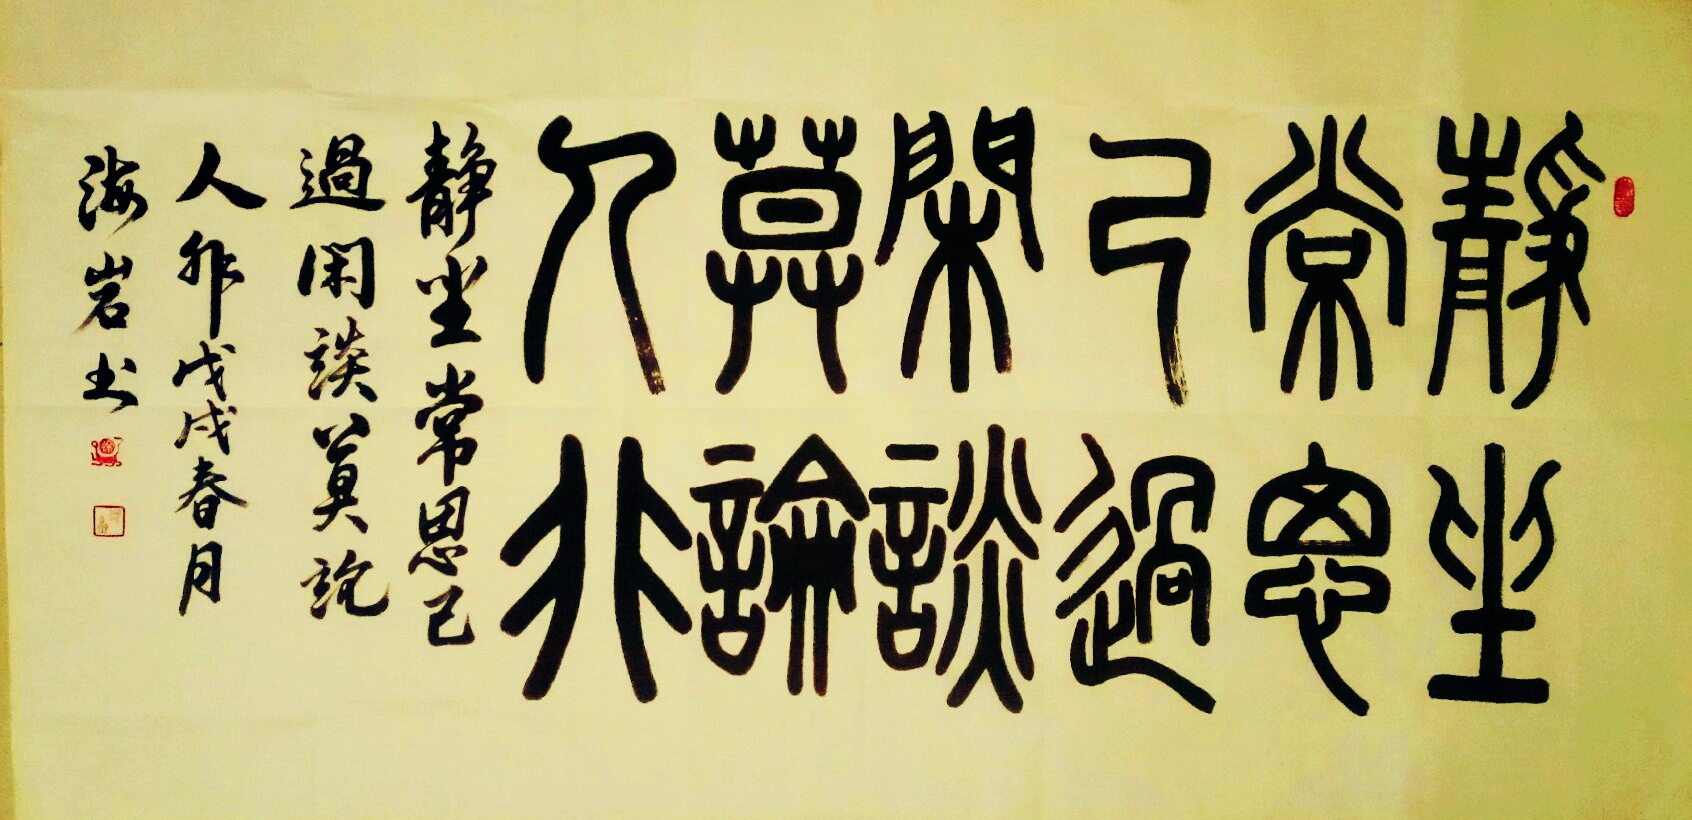 靜坐
常思
己過
閑談
莫論
人非
靜坐常思己
過閑談莫論
人非戊戌春月
海岩书